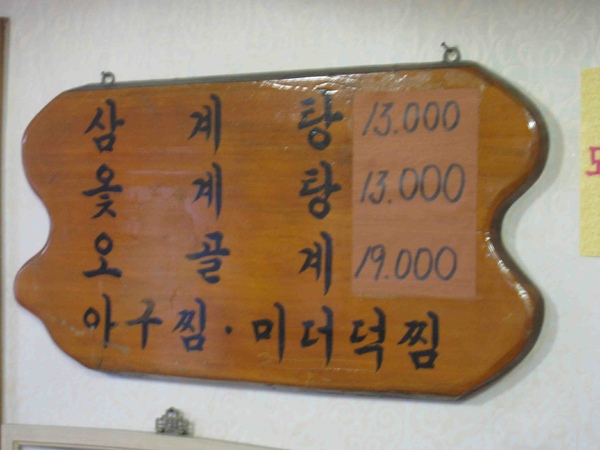 삼계탕 13.000
옻계탕 13.000
오골계 19.000
아구찜·미더덕찜